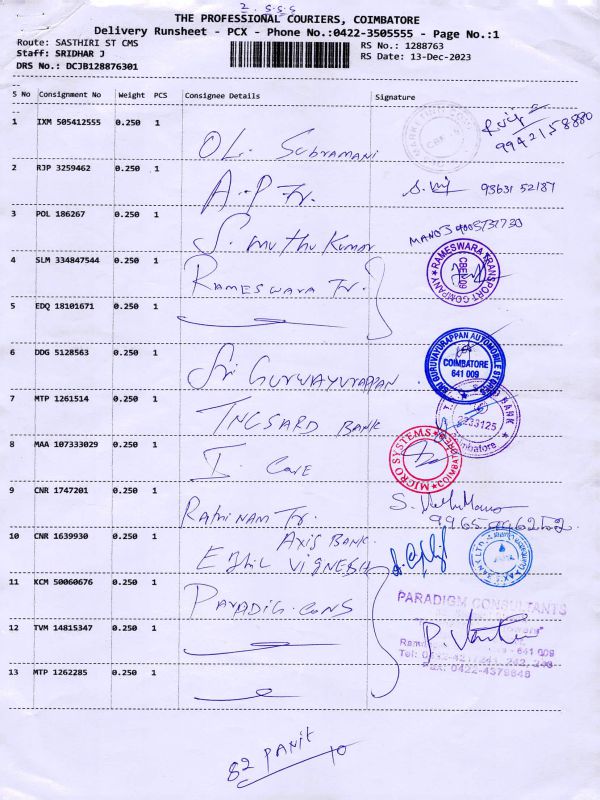 2. S.S.S
THE PROFESSIONAL COURIERS, COIMBATORE
Delivery Runsheet - PCX - Phone No.:0422-3505555 - Page No.:1
Route: SASTHIRI ST CMS
Staff: SRIDHAR J
DRS No.: DCJB128876301
RS No.: 1288763
RS Date: 13-Dec-2023
S No Consignment No Weight PCS Consignee Details Signature
1 IXM 505412555 0.250 1 OL. Subramani 9942158880
2 RJP 3259462 0.250 1 A.P Tr. 93631 52187
3 POL 186267 0.250 1 S. Muthu Kumar MANOJ
4 SLM 334847544 0.250 1 Rameswara Tr. RAMESWARA TRANSPORT COMPANY CBE-09
5 EDQ 18101671 0.250 1
6 DDG 5128563 0.250 1 Sri Guruvayurappan SRI GURUVAYURAPPAN AUTOMOBILE STORES COIMBATORE 641 009
7 MTP 1261514 0.250 1 TNCSARD BANK BANK Coimbatore
8 MAA 107333029 0.250 1 I. Care MICRO SYSTEMS COIMBATORE
9 CNR 1747201 0.250 1 Rathinam Tr.
10 CNR 1639930 0.250 1 Axis Bank.
Ezhil Vignesh
11 KCM 50060676 0.250 1 Paradig. cons PARADIGM CONSULTANTS
12 TVM 14815347 0.250 1
13 MTP 1262285 0.250 1
641 009
Fax: 0422-4379848
82 Panit
10